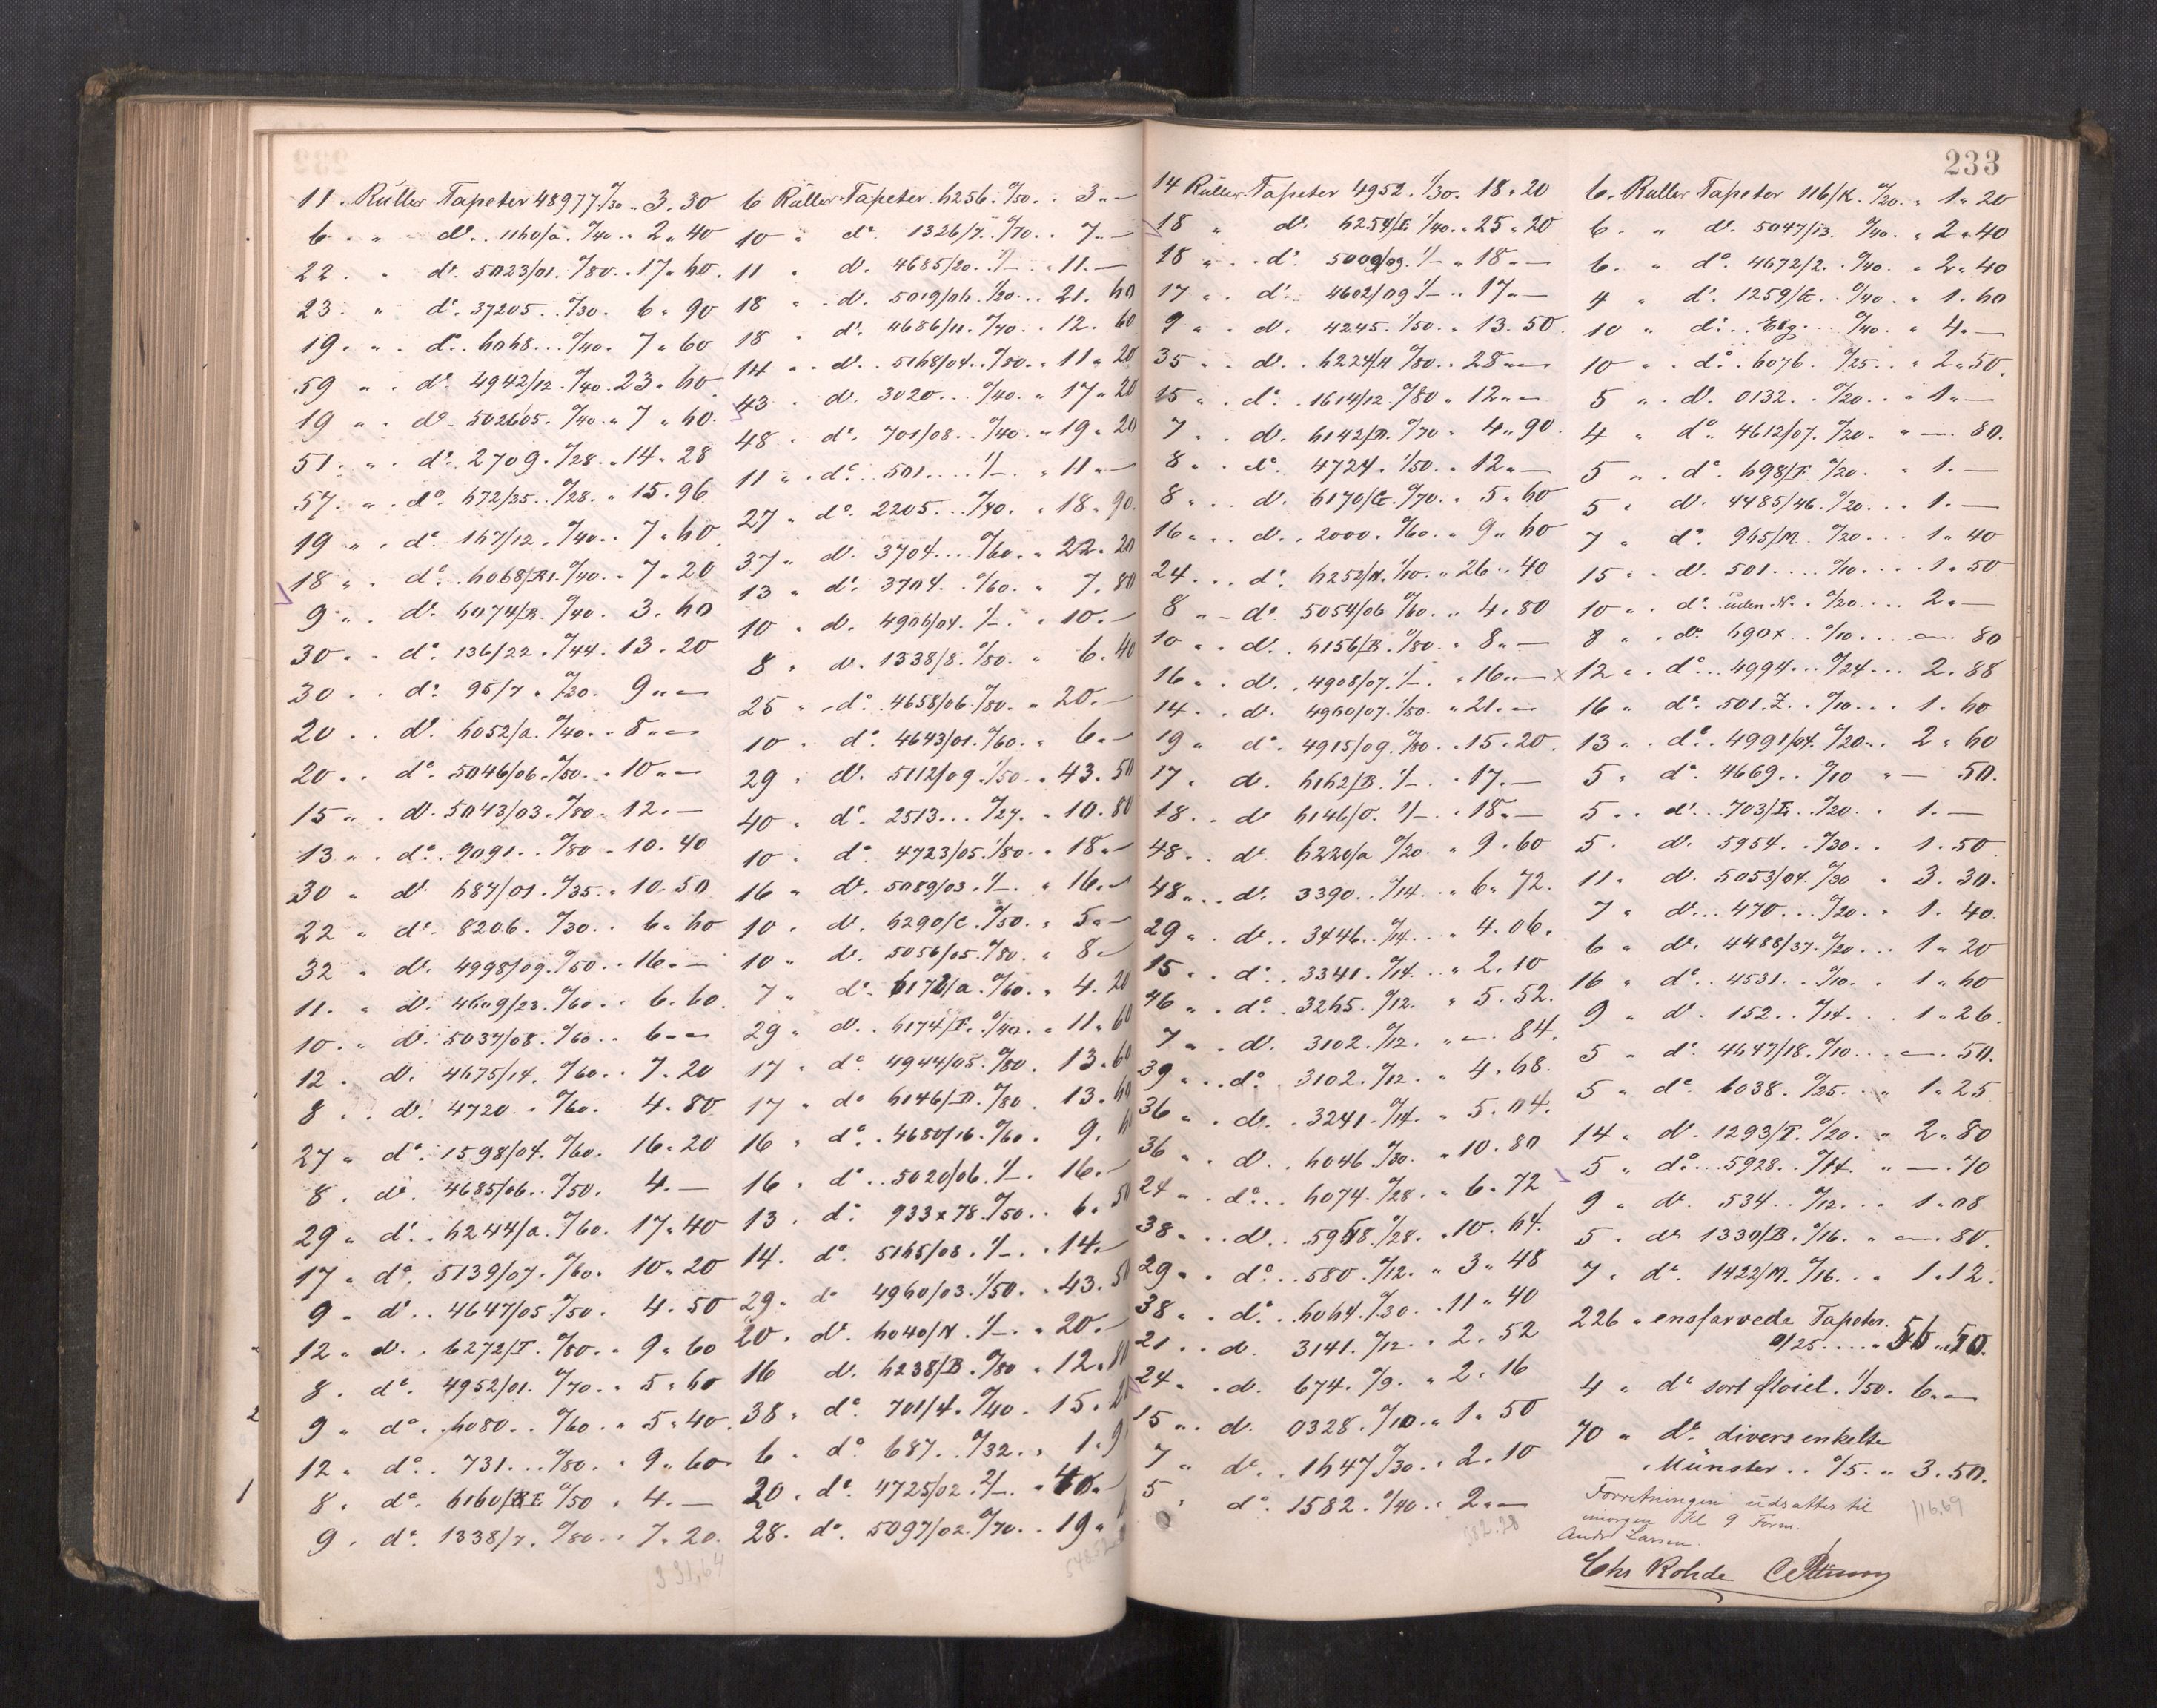 11 . Rüller Tapeter 48977 . %30 .. 3. 30
6 . " d° .. 1160/a . %40 .. 2 " 40
22 . " d° . 5023/01 . %80 .. 17 " 60
23 . " d° . 37205 .. %30 . 6 " 90
19 . " . d° . 6068 ... %40 . 7 " 60
59 " . d° . 4942/12 . %40 . 23 " 60
19 " . d° . 502605 . %40 . " 7 " 60.
51 . " . d° . 2709 . %28 .. 14 " 28
57 . " . d° . 672/35 .. %28 . " 15 . 96
19 " . d° . 167/12 . %40 .. 7 " 60
18 " . d° . 6068/R1 . %40 .. 7 " 20
9 " . d° . 6074/B . %40 . 3. 60
30 " . d° . 136/22 . %44 . 13 . 20
30 . . d° . 95/7 . %30 . 9 " —
20 . . d° . 6052/a . %40 .. 8 " —
20 . . d° . 5046/06 . %50 .. 10 " —
15 " . d° . 5043/03 . %80 . 12 . —
13 " . d° .. 9091 .. %80 . 10 . 40
30 " d° 687/01 . %35 . 10 . 50
22 " d° . 8206 . %30 .. 6 " 60
32 " d° . 4998/09 . %50 .. 16 " —
11 . " d° . 4609/23 . %60 .. 6. 60
10 . " d° . 5037/08 . %60 .. 6 " —
12 . d° . 4675/14 . %60 .. 7. 20
8 . . d° . 4720 . . %60 . 4 . 80
27 " d° . 1598/04 . %60 . 16 " 20
8 . d° . 4685/06 .. %50 . 4 . —
29 " d° . 6244/a . %60 . 17 " 40
17 " d° . 5139/07 . %60 . 10 " 20
9 " d° .. 4647/05 . %50 . 4 . 50
12 " d° . . 6272/I . %80 .. 9 " 60
8 . d° . 4952/01 . %70 . . 5 " 60
9 " d° .. 6080 .. %60 . " 5 " 40
12 " d° .. 731 ... %80 .. 9 " 60
8 . d° . 6160/RI %50 . 4 . —
9 . d° . 1338/7 . %80 . . 7 . 20.
331,64
6 Rüller Tapeter . 6256 . %50 . . 3 " —
10 " d° . 1326/7 .. %70 .. 7 " —
11 " d° . 4685/20 . 1/— . 11 . —
18 " . d° . 5019/06 . 1/20 ... 21 . 60
18 " d° . 4686/11 . %70 .. 12 . 60
14 " . d° .. 5168/04 .. %80 .. 11 " 20
43 . d° . 3020 ... %40 . " 17 " 20
48 . d° . 701/08 .. %40 . " 19 " 20
11 " . d° .. 501 .... 1/— . " 11 " —
27 " d° . 2205 ... %70 . " 18 " 90.
37 " d° . 3704 ... %60 . " 22 " 20
13 " d° . 3704 .. %60 . " 7. 80
10 " d° . 4906/04 . 1/— . " 10 . —
8 " d° . 1338/8 . %80 . " 6 . 40
25 " d° . 4658/06 . %80 . " 20 . —
10 . d° . 4643/01 . %60 . " 6 " —
29 . d° . 5112/09 . 1/50 . . 43 . 50
40 . d° . 2513 ... %27 . . 10 . 80
10 . d° . 4723/05 . 1/80 . . 18 " —
16 " d° . 5089/03 . 1/— . " 16 " —
10 . d° . 6290/C . %50 . . 5 " —
10 " d° . 5056/05 . %80 . " 8 —
7 " d° . 6171/a . %60 . " 4 . 20
29 " d° . . 6174/F . . %40 . . 11 " 60
17 " d° 4944/05 . %80 . 13 . 60
17 " d° 6146/D . %80 . 13 . 60
16 " d° . . 4680/16 . %60 . 9 . 60
16 . d° .. 5020/06 . 1/— . 16 . —
13 . d° . 933 x 78 . %50 . . 6 . 50
14 . d° . 5165/08 . 1/— . . 14 . —
29 . d° 4960/03 . 1/50 . . 43 . 50
20 . d° . 6040/N . 1/— . . 20 . —
16 d° . 6238/B . %80 . 12 . 80
38 . d° . 701/4 . %40 . 15 . 20
6 . d° . 687 .. %32 . . 1 . 9
20 . d° . 4725/02 . 2/— . . 40 . —
28 . d° . 5097/02 . %70 . . 19 "
233
14 Rüller Tapeter 4952 . 1/30 . 18 . 20
18 " d° . 6254/E 1/40 . " 25 " 20
18 " . . d° . 5009/09 . 1/— " 18 " —
17 " . d° . 4602/09 1/— . " 17 " —
9 " . d° . 4245 . 1/50 . . 13 . 50.
35 " . d° . . 6224/H %80 . . 28 " —
15 " . d° . . 1614/12 . %80 . 12 " —
7 " . d° . 6142/D . %70 . 4 " 90.
8 " . d° . 4724 . 1/50 . . 12 " —
8 " . . d° . 6170/G . %70 . . 5 " 60
16 " . . d° . . 2000 . %60 . . 9 " 60
24 . . . d° . 6252/N . 1/10 . . 26 . . 40
8 " — d° . 5054/06 %60 . . 4 . 80
10 " . d° . . 6156/B . %80 . . 8 " —
16 " . d° . . 4908/07 . 1/— . . 16 " —
14 . . d° . 4960/07 . 1/50 . " 21 . —
19 " d° . 4915/09 . %80 . . 15 . 20.
17 . d° . 6162/B . 1/— . . 17 . —
18 . . d° 6146/O . 1/— . . 18 " —
48 . . d° 6220/a %20 . " 9 . 60
48 " . . d° . 3390 .. %14 . . " 6 " 72.
29 " . d° . . 3446 . %14 . . . " 4 . 06.
15 " . d° . . 3341 . %14 . . . 2 . 10
46 " . d° . . 3265 . %12 . . 5 . 52.
7 " . d° . 3102 . %12 . . " — . 84.
39 " . . d° . . 3102 . %12 . . 4 . 68.
36 " . d° . . 3241 . %14 . " 5 . 04.
36 " . d° . . 6046 . %30 . " 10 . 80
24 " . d° . . 6074 . %28 . " 6 . 72
38 " . . d° . . 5958 . %28 . " 10 . 64.
29 " . d° . . . 580 . %12 . " 3 " 48
38 " . d° . . 6064 . %30 . . 11 " 40
21 . . d° . 3141 . %12 . . 2 . 52
24 " . d° . 674 . %9 . " 2 . 16
15 " . d° . 0328 . %10 . " 1 . 50
7 " d° . . 1647 . %30 . . 2 . 10
5 " d° . 1582 . %40 . . 2 " —
382.28
6 . Ruller Tapeter 116/K . %20 . " 1 " 20
6 . " d° . 5047/13 . %40 . " 2 " 40
6 . " d° . 4672/2 . . %40 . " 2 " 40
4 " d° . 1259/G . . %40 . " 1 . 60
10 " d° . . Elg . . . %40 . " 4 . —
10 " . d° . . 6076 . %25 . . " 2 " 50.
5 " . d° . 0132 . . %20 . . " 1 " —
4 " d° . 4612/07 . %20 . " — . 80.
5 " . d° . 698/F . %20 . " 1 . —
5 " d° . 4485/46 . %20 . . . 1 . —
7 " d° . 965/M . %20 . . . 1 " 40
15 " . d° . 501 .... %10 .... 1 " 50
10 " . d° . üden N° . %20 . . . 2 " —
8 " . d° . 690x . . %10 . . . — 80
12 " . d° . . 4994 ... %24 ... 2 . 88
16 " d° . 501.Z . . %10 . . . 1 . 60
13 " . d° . . 4991/04 . %20 . . . 2 " 60
5 " d° . 4669 . . %10 " — 50.
5 . . d° . . 703/E . . %20 . . 1 . —
5 . d° . 5954 . . %30 . . 1 . 50
11 . d° . 5053/04 . %30 . 3 . 30.
7 " d° . . 470 . . . %20 . . 1 . 40.
6 " d° . 4488/37 . %20 . . . 1 " 20
16 " d° . . 4531 . . %10 . . 1 " 60
9 " d° . 152 . . %14 . . . 1 " 26.
5 " d° . 4647/18 . %10 . . . — . 50.
5 " d° . 6038 . %25 . . " 1 " 25
14 " d° . 1293/I . %20 . " 2 " 80
5 " d° . . 5928 . . %14 . " — . 70
9 " d° . 534 . . %12 . . . 1 " 08
5 . d° 1330/B . %16 . " — . 80.
7 " d° . 1422/M . %16 . . " 1 . 12.
226 " ensfarvede Tapeter.
%25 ..... 56 " 50.
4 " d° sort fløiel . 1/50 . 6 . —
70 " d° . divers enkelte
Münster . . %5 . " 3 . 50.
Forretningen udsattes til
imorgen Kl 9 Form.
116,69
Andr Larsen.
Chr Rohde